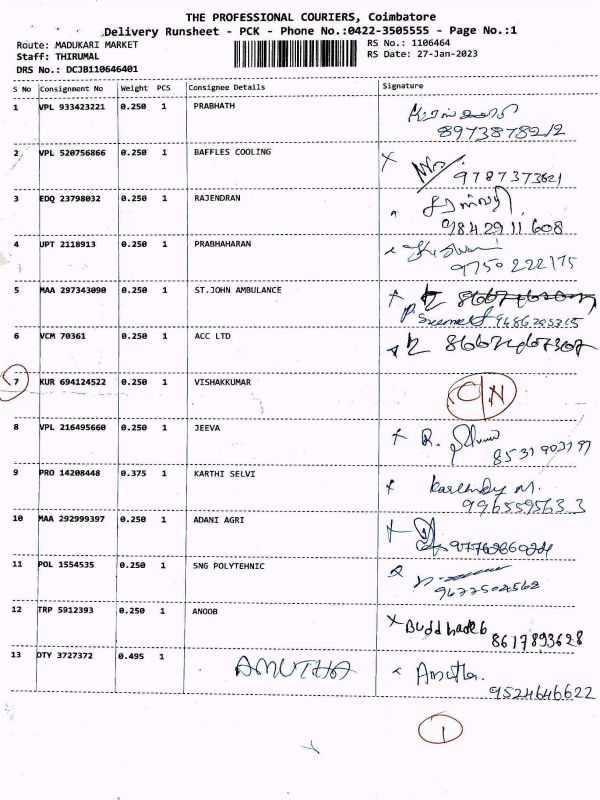 THE PROFESSIONAL COURIERS, Coimbatore
Delivery Runsheet - PCK - Phone No.:0422-3505555 - Page No.:1
Route: MADUKARI MARKET
RS No.: 1106464
Staff: THIRUMAL
RS Date: 27-Jan-2023
DRS No.: DCJB110646401
S No Consignment No Weight PCS Consignee Details Signature
1 VPL 933423221 0.250 1 PRABHATH
8973878212
2 VPL 520756866 0.250 1 BAFFLES COOLING
9787373621
3 EDQ 23798032 0.250 1 RAJENDRAN
9842911608
4 UPT 2118913 0.250 1 PRABHAHARAN
9750222175
5 MAA 297343090 0.250 1 ST.JOHN AMBULANCE
6 VCM 70361 0.250 1 ACC LTD
7 KUR 694124522 0.250 1 VISHAKKUMAR CN
8 VPL 216495660 0.250 1 JEEVA
9 PRO 14208448 0.375 1 KARTHI SELVI
9965595633
10 MAA 292999397 0.250 1 ADANI AGRI
11 POL 1554535 0.250 1 SNG POLYTEHNIC
12 TRP 5912393 0.250 1 ANOOB
8617893628
13 DTY 3727372 0.495 1 AMUTHA Amutha.
9524646622
1